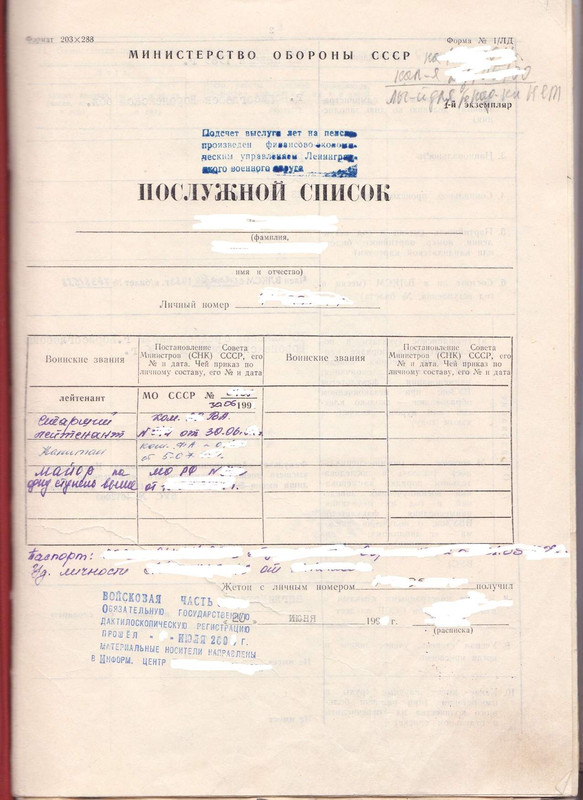 Формат 203×288
Форма № 1/ЛД
МИНИСТЕРСТВО ОБОРОНЫ СССР
1-й экземпляр
Подсчет выслуги лет на пенсию
произведен финансово-эконо-
ческим управлением Ленинград
ского военного округа
ПОСЛУЖНОЙ СПИСОК
(фамилия,
имя и отчество)
Личный номер
Воинские звания
Постановление Совета
Министров (СНК) СССР, его
№ и дата. Чей приказ по
личному составу, его № и дата
Воинские звания
Постановление Совета
Министров (СНК) СССР, его
№ и дата. Чей приказ по
личному составу, его № и дата
лейтенант
МО СССР №
30.06 199
Старший
лейтенант
Ком. ВА
№ от 30.06.
Капитан
ком. ФА
от 5.07
майор на
одну ступень выше
МО РФ №
от г.
Паспорт:
Уд. личности от
Жетон с личным номером получил
ВОЙСКОВАЯ ЧАСТЬ
ОБЯЗАТЕЛЬНУЮ ГОСУДАРСТВЕННУЮ
ДАКТИЛОСКОПИЧЕСКУЮ РЕГИСТРАЦИЮ
ПРОШЁЛ - " - ИЮЛЯ 200 г.
МАТЕРИАЛЬНЫЕ НОСИТЕЛИ НАПРАВЛЕНЫ
В ИНФОРМ. ЦЕНТР
« 20 » июня 199 г.
(расписка)